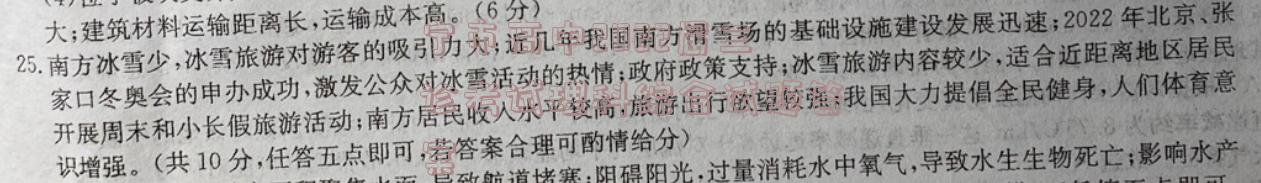 大;建筑材料运输距离长,运输成本高。(6分)
25.南方冰雪少,冰雪旅游对游客的吸引力大;近几年我国南方滑雪场的基础设施建设发展迅速;2022年北京、张
家口冬奥会的申办成功,激发公众对冰雪活动的热情;政府政策支持;冰雪旅游内容较少,适合近距离地区居民
开展周末和小长假旅游活动;南方居民收入水平较高,旅游出行欲望较强;我国大力提倡全民健身,人们体育意
识增强。(共10分,任答五点即可,若答案合理可酌情给分)
导致航道堵塞;阻碍阳光,过量消耗水中氧气,导致水生生物死亡;影响水产